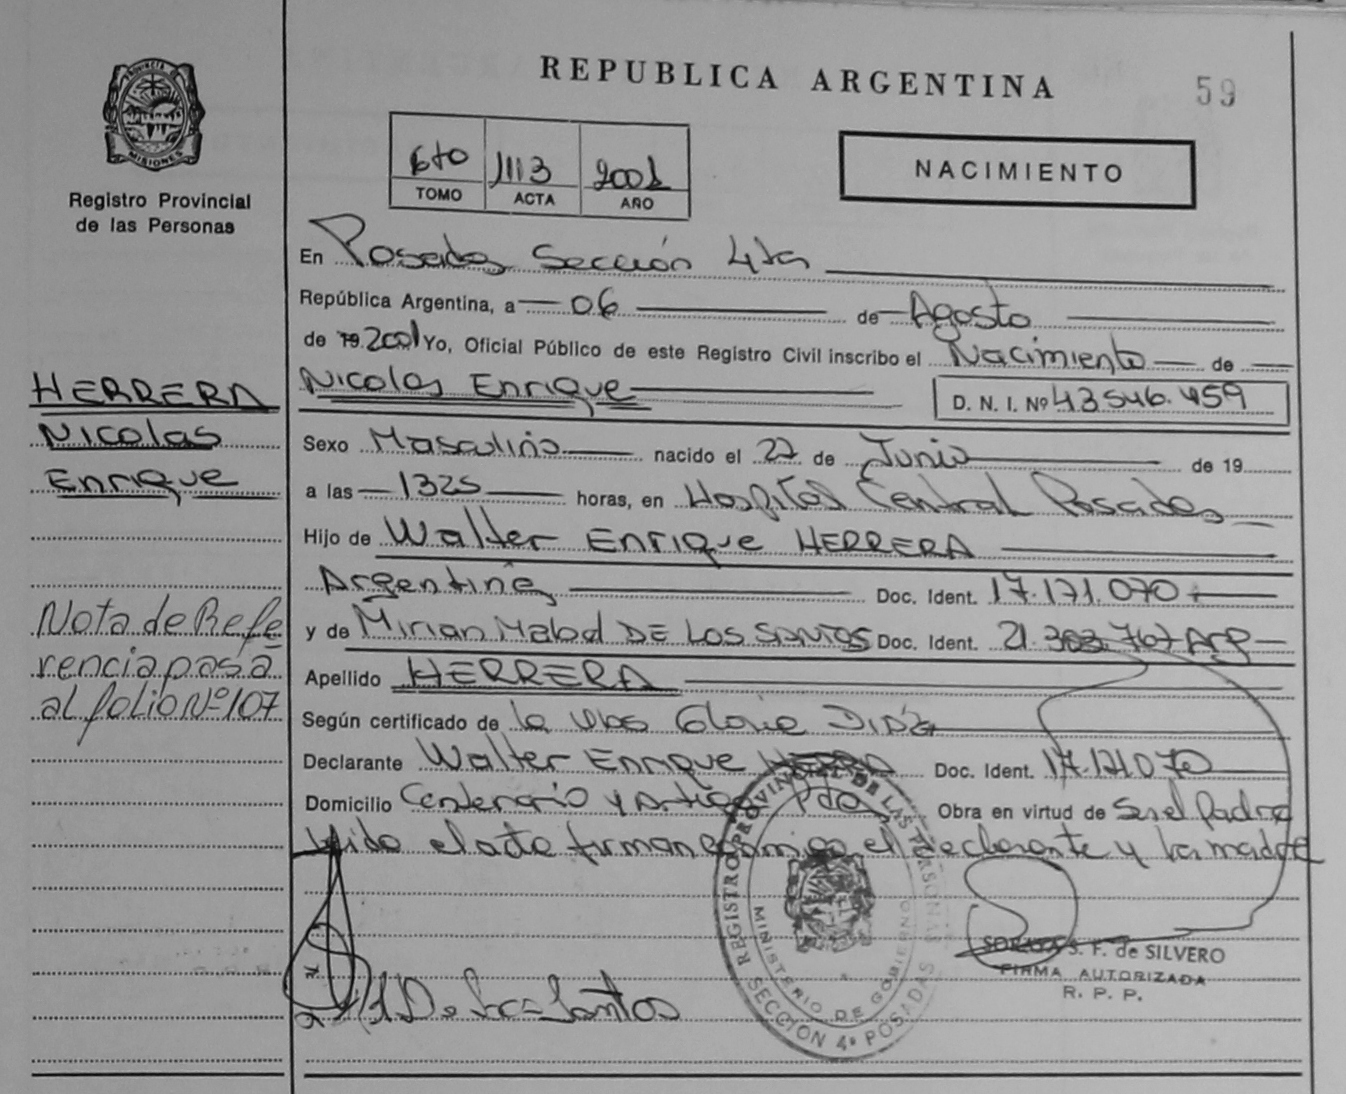 REPUBLICA ARGENTINA
59
PROVINCIA DE MISIONES
Registro Provincial
de las Personas
6to 1113 2001
TOMO ACTA AÑO
NACIMIENTO
En Posadas Sección 4ta
República Argentina, a 06 de Agosto
de 19 2001 Yo, Oficial Público de este Registro Civil inscribo el Nacimiento de
Nicolas Enrique D. N. I. Nº 43546.459
Sexo Masculino nacido el 27 de Junio de 19
a las 1325 horas, en Hospital Central Posadas
Hijo de Walter Enrique HERRERA
Argentino Doc. Ident. 17.171.070
y de Mirian Mabel DE LOS SANTOS Doc. Ident. 21.303.767 Arg
Apellido HERRERA
Según certificado de la Obs Gloria
Declarante Walter Enrique Doc. Ident. 17.171070
Domicilio Centenario y Artigas Pdas Obra en virtud de Ser el Padre
leida el acta firman conmigo el declarante y la madre
HERRERA
Nicolas
Enrique
Nota de Refe
rencia pasa
al folio Nº 107
M De Los Santos
REGISTRO PROVINCIAL DE LAS PERSONAS
MINISTERIO DE GOBIERNO
SECCION 4ª POSADAS
S. F. de SILVERO
FIRMA AUTORIZADA
R. P. P.